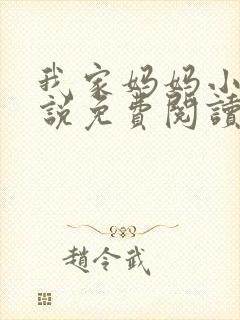 我家妈妈小
说免費閱讀
趙令武